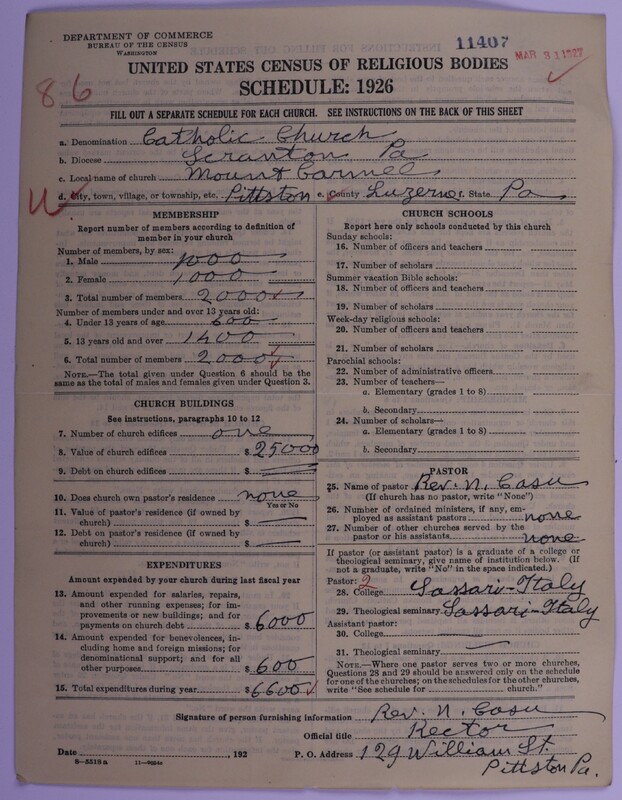 DEPARTMENT OF COMMERCE
BUREAU OF THE CENSUS
WASHINGTON
11407
MAR 31 1927
UNITED STATES CENSUS OF RELIGIOUS BODIES
SCHEDULE: 1926
86
FILL OUT A SEPARATE SCHEDULE FOR EACH CHURCH. SEE INSTRUCTIONS ON THE BACK OF THIS SHEET
a. Denomination Catholic Church
b. Diocese Scranton Pa
c. Local name of church Mount Carmel
d. City, town, village, or township, etc. Pittston e. County Luzerne f. State Pa
MEMBERSHIP
Report number of members according to definition of
member in your church
Number of members, by sex:
1. Male 1000
2. Female 1000
3. Total number of members 2000
Number of members under and over 13 years old:
4. Under 13 years of age 600
5. 13 years old and over 1400
6. Total number of members 2000
NOTE.—The total given under Question 6 should be
same as the total of males and females given under Question 3.
CHURCH BUILDINGS
See instructions, paragraphs 10 to 12
7. Number of church edifices one
8. Value of church edifices $ 25000
9. Debt on church edifices $
10. Does church own pastor's residence none
Yes or No
11. Value of pastor's residence (if owned by
church) $
12. Debt on pastor's residence (if owned by
church) $
EXPENDITURES
Amount expended by your church during last fiscal year
13. Amount expended for salaries, repairs,
and other running expenses; for im-
provements or new buildings; and for
payments on church debt $ 6000
14. Amount expended for benevolences, in-
cluding home and foreign missions; for
denominational support; and for all
other purposes $ 600
15. Total expenditures during year $ 6600
CHURCH SCHOOLS
Report here only schools conducted by this church
Sunday schools:
16. Number of officers and teachers
17. Number of scholars
Summer vacation Bible schools:
18. Number of officers and teachers
19. Number of scholars
Week-day religious schools:
20. Number of officers and teachers
21. Number of scholars
Parochial schools:
22. Number of administrative officers
23. Number of teachers—
a. Elementary (grades 1 to 8)
b. Secondary
24. Number of scholars—
a. Elementary (grades 1 to 8)
b. Secondary
PASTOR
25. Name of pastor Rev. N. Casu
(If church has no pastor, write "None")
26. Number of ordained ministers, if any, em-
ployed as assistant pastors none
27. Number of other churches served by the
pastor or his assistants none
If pastor (or assistant pastor) is a graduate of a college or
theological seminary, give name of institution below. (If
not a graduate, write "No" in the space indicated.)
Pastor: 2
28. College Sassari-Italy
29. Theological seminary Sassari-Italy
Assistant pastor:
30. College
31. Theological seminary
NOTE.—Where one pastor serves two or more churches,
Questions 28 and 29 should be answered only on the schedule
for one of the churches; on the schedules for the other churches,
write "See schedule for church."
Signature of person furnishing information Rev. N. Casu
Official title Rector
Date , 192 P. O. Address 129 William St.
Pittston Pa.
8—5519a